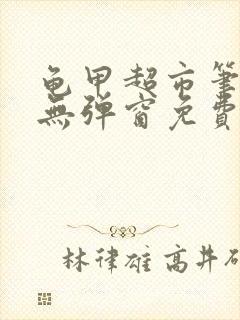 龜甲超市筆
無彈窗免費
林律雄 高井研